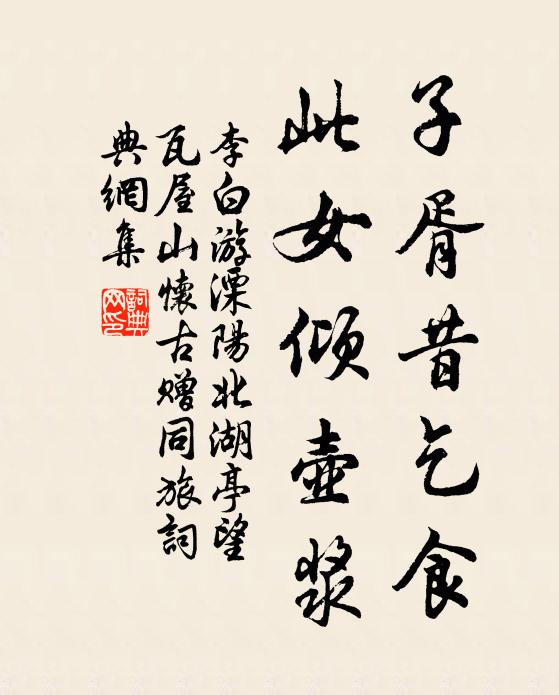 子胥昔乞食
此女倾壺漿
李白游溧陽北湖亭望
瓦屋山懷古赠同旅詞
典網集
詞典
网印